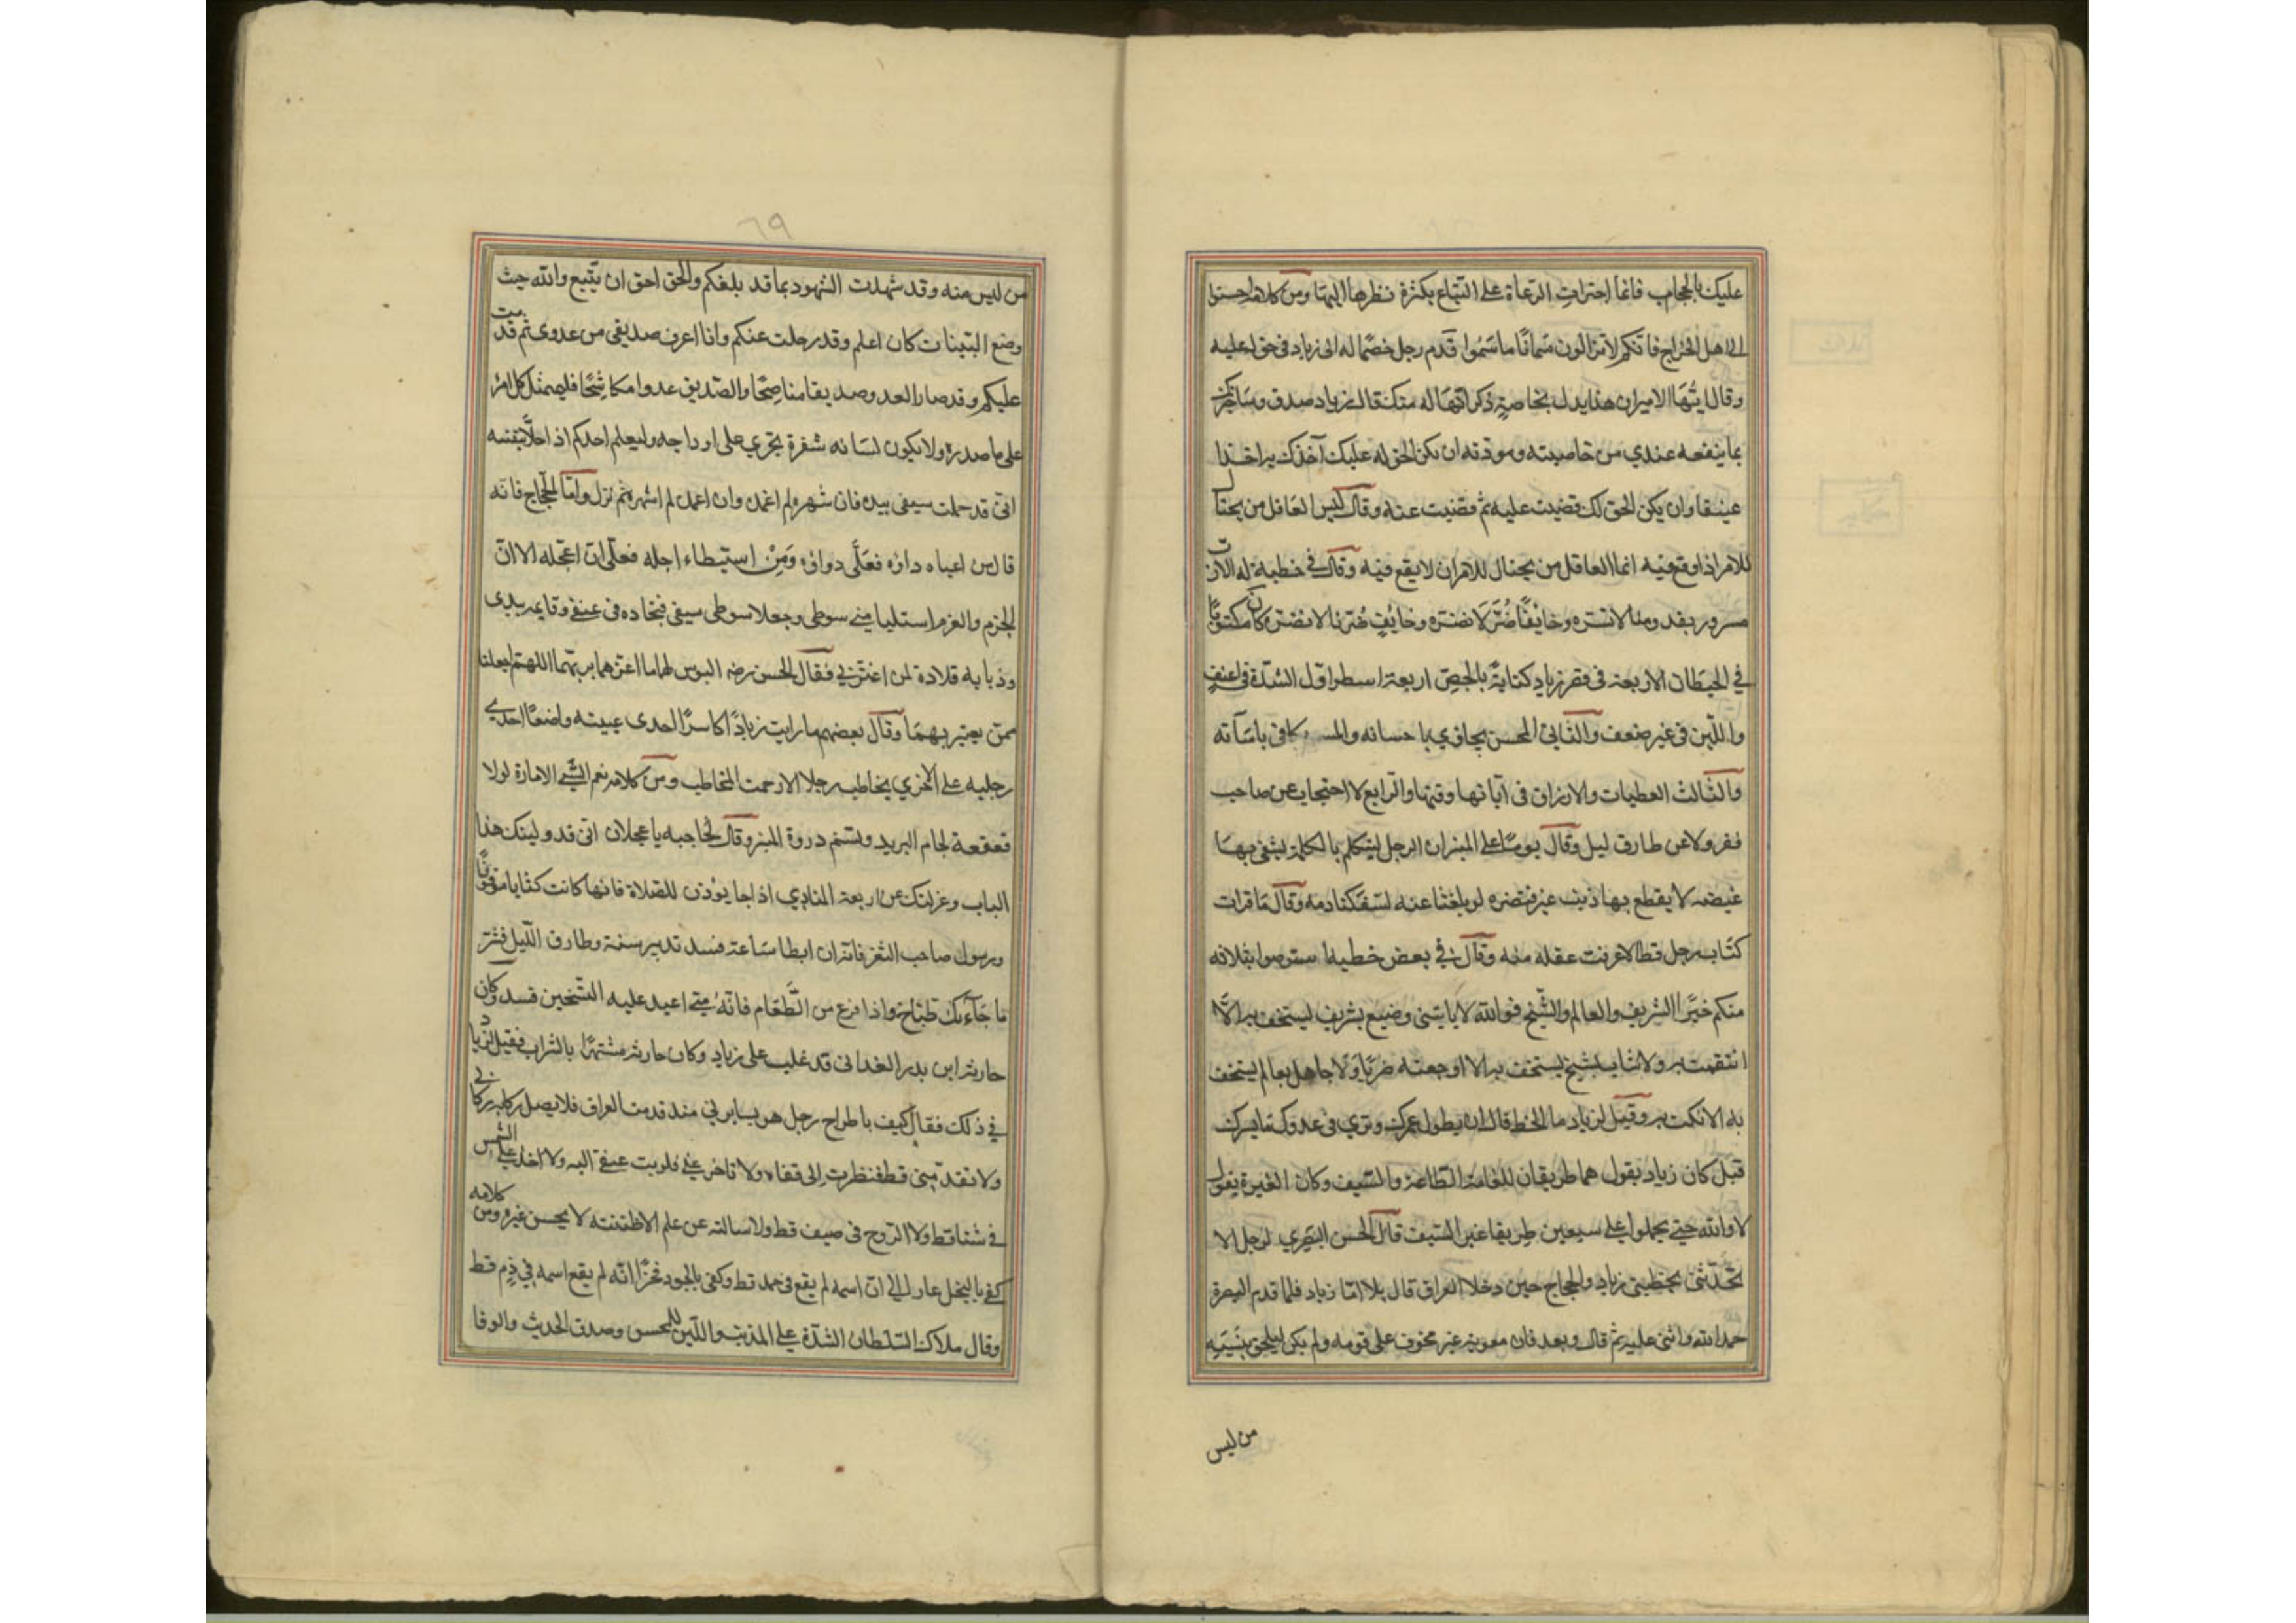 عليك بالحجاب فانما اجترات الرعاة على السباع بكثرة نظرها اليها ومن كلامه احسنوا
الى اهل الخراج فانكم لا تزالون سمانا ما سمنوا قدم رجل خصما له الى زياد في حق له عليه
وقال ايها الامير ان هذا يدل بخاصة ذكر انها له منك قال زياد صدق وساخبرك
بما ينفعه عندي من خاصيته ومودته ان يكن الحق له عليك آخذك به اخذا
عنيفا وان يكن الحق لك قضيت عليه ثم قضيت عنه وقال ليس العاقل من يحتال
للامر اذا وقع فيه انما العاقل من يحتال للامر ان لا يقع فيه وقال في خطبة له الا رب
مسرور بقدومنا لا نسره وخائفا ضرنا لا نضره وكان مكتوبا
في الحيطان الاربعة في قصر زياد كتابة بالجص اربعة اسطر اول الشدة في غير عنف
واللين في غير ضعف والثاني المحسن يجازي باحسانه والمسـ ـكافى باسآته
والثالث العطيات والارزاق في آياتها وقتها والرابع لا احتجاب عن صاحب
ثغر ولا عن طارق ليل وقال يوما على المنبر ان الرجل ليتكلم بالكلمة ليشفي بها
غيضه لا يقطع بها ذنب عنز فتضره لو بلغتنا عنه لسفكنا دمه وقال ما قرات
كتاب رجل قط الا عرفت عقله منه وقال في بعض خطبه استوصوا بثلاثه
منكم خيرا الشريف والعالم والشيخ فوالله لا ياتيني وضيع بشريف ليستخف به الا
انتقمت له ولا شاب بشيخ يستخف به الا اوجعته ضربا ولا جاهل بعالم يستخف
به الا نكت به وقيل لزياد ما الحظ قال ان يطول عمرك وتري في عدوك ما يسرك
قيل كان زياد يقول هما طريقان للعامة الطاعة والسيف وكان المغيرة يقول
لا والله حتى يحملوا على سبعين طريقا غير السيف قال الحسن البصري لرجل الا
تحدثني بخطبتي زياد والحجاج حين دخلا العراق قال بلا اما زياد فلما قدم البصرة
حمد الله واثنى عليه ثم قال وبعد فان معوية غير مخوف على قومه ولم يكن ليلحق بنسبه
من ليس
٦٩
من ليس منه وقد شهدت الشهود بما قد بلغكم والحق احق ان يتبع والله حيث
وضع البينات كان اعلم وقد رحلت عنكم وانا اعرف صديقي من عدوي ثم قدمت
عليكم وقد صار العدو صديقا مناصحا والصديق عدوا مكاشحا فليشتمل كل امرئ
على ما صدره ولا يكون لسانه شفرة تجري على اوداجه وليعلم احدكم اذا خلا بنفسه
اني قد حملت سيفي بيده فان شهره لم اغمده وان اغمده لم اشهره ثم نزل واما الحجاج فانه
قال من اعياه داؤه فعلي دواؤه ومن استبطاء اجله فعلي ان اعجله الا ان
الحزم والعزم استلبا مني سوطي وجعلا سوطي سيفي فنجاده في عنقي وقايمه بيدي
وذبابه قلادة لمن اغتر بي فقال الحسن رضه البوس لهما ما اغرهما بربهما اللهم اجعلنا
ممن يعتبر بهما وقال بعضهم ما رايت زيادا كاسرا احدى عينيه واضعا احدي
رجليه على الاخري يخاطب رجلا الا رحمت المخاطب ومن كلامه نعم الشئ الامارة لولا
قعقعة لجام البريد وتسنم دروة المنبر وقال لحاجبه يا عجلان اني قد وليتك هذا
الباب وعزلتك عن اربعة المنادي اذا جا يؤذن للصلاة فانها كانت كتابا موقوتا
ورسول صاحب الثغر فانه ان ابطا ساعة فسد تدبير سنة وطارق الليل فشر
ما جاءك طباخ واذا فرغ من الطعام فانه متى اعيد عليه التسخين فسد وكان
حارثة ابن بدر الغداني قد غلب على زياد وكان حارثة مشتهرا بالشراب فقيل لزياد
في ذلك فقال كيف باطراح رجل هو يسايرني منذ قدمت العراق فلا يصل ركابه ركابي
ولا تقدمني قط فنظرت الى قفاه ولا تاخر عني فلويت عنقي اليه ولا اخذ على الشمس
في شتا قط ولا الروح في صيف قط ولا سالته عن علم الا ظننته لا يحسن غيره ومن كلامه
كفى بالبخل عارا ان اسمه لم يقع في حمد قط وكفى بالجود فخرا انه لم يقع اسمه في ذم قط
وقال ملاك السلطان الشدة على المذنب واللين للمحسن وصدق الحديث والوفا